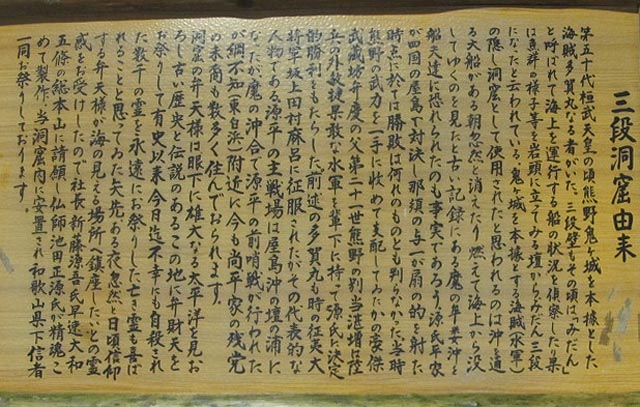 三段洞窟由来
第五十代桓武天皇の頃熊野鬼ヶ城を本據とした
海賊多賀丸なる者がいた。三段壁もその頃は「みだん」
と呼ばれて海上を運行する船の状況を偵察したり果
は魚群の様子等を岩頭に立ってみる壇からみだん三段
になったと云われている。鬼ヶ城を本據とする海賊(水軍)
の隠し洞窟として使用されたと思われるのは沖を通
る大船がある朝忽然と消えたり燃えて海上から没
してゆくのを見たと古い記録にある魔の牟婁沖と
船夫達に恐れられたのも事実であろう。源氏平家
が四国の屋島で対決し那須の与一が扇の的を射た
時点に於ては勝敗は何れのものとも判らなかった当時
熊野の武力を一手に收めて支配してゐたかの豪傑
武蔵坊弁慶の父第二十一世熊野の別当湛増は陸
兵の外数捷果敢な水軍を輩下に持て源氏に決定
的勝利をもたらした前述の多賀丸も時の征夷大
将軍坂上田村麻呂に征服されたがその代表的な
人物である源平の主戦場は屋島沖の壇の浦に
なったが魔の沖合で源平の前哨戦が行われた
が綱不知、東白浜附近に今も尚平家の残党
の末裔も数多く住んでおられます。
洞窟の弁天様は眼下に雄大なる太平洋を見お
ろし古い歴史と伝説のあるこの地に弁財天を
お祭りして有史以来今日迄不幸にも自殺され
た数千の霊を永遠にお祭りした亡き霊も喜ば
れることと思ってゐた矢先ある夜忽然と日頃信仰
する弁天様が海の見える場所へ鎮座したいとの霊
感をお受けしたので社長新藤源吾氏早速大和
五條の総本山に請願し仏師池田正源氏が精魂こ
めて製作、当洞窟内に安置され和歌山県下信者
一同お祭りしております。